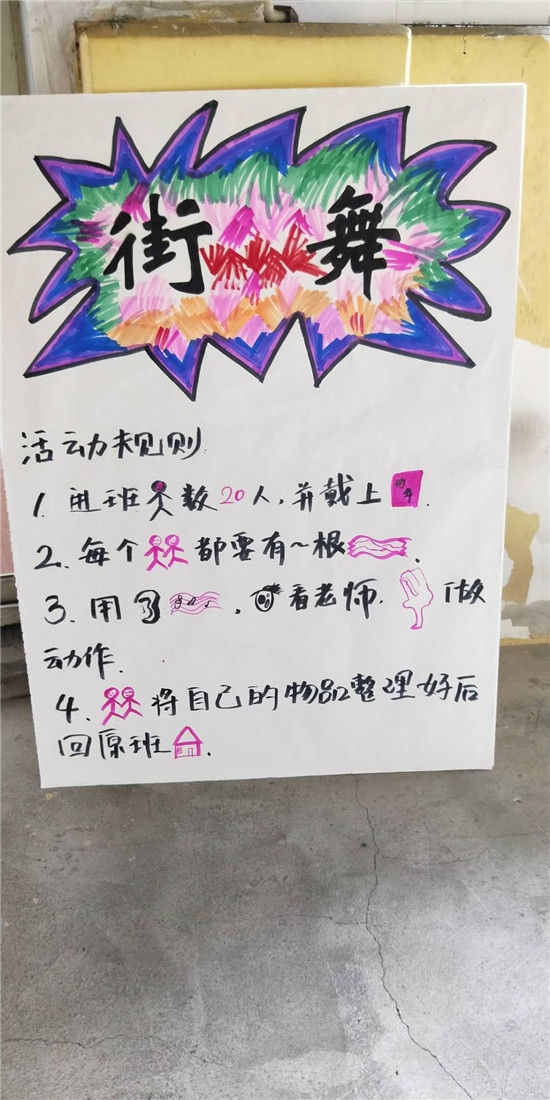 街舞
活动规则:
1. 进班数20人,并戴上.
2. 每个都要有~根.
3. 用,看老师.做
动作.
4. 将自己的物品整理好后
回原班.